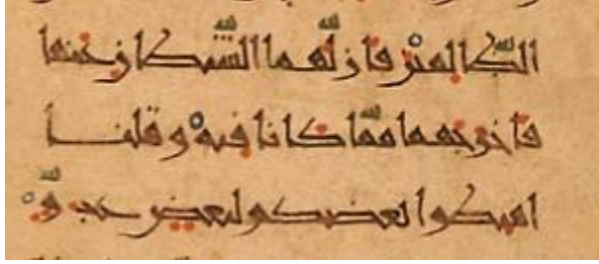 الظالمين فازلهما الشيطن عنها
فاخرجهما مما كانا فيه وقلنا
اهبطوا بعضكم لبعض عدو